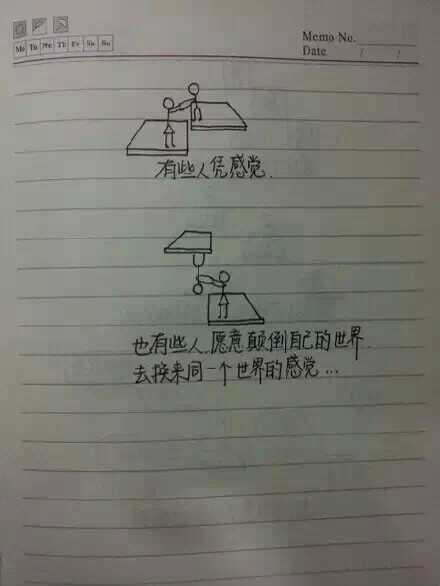 Memo No.
Mo Tu We Th Fr Sa Su
Date / /
有些人凭感觉.
也有些人.愿意颠倒自己的世界.
去换来同一个世界的感觉...